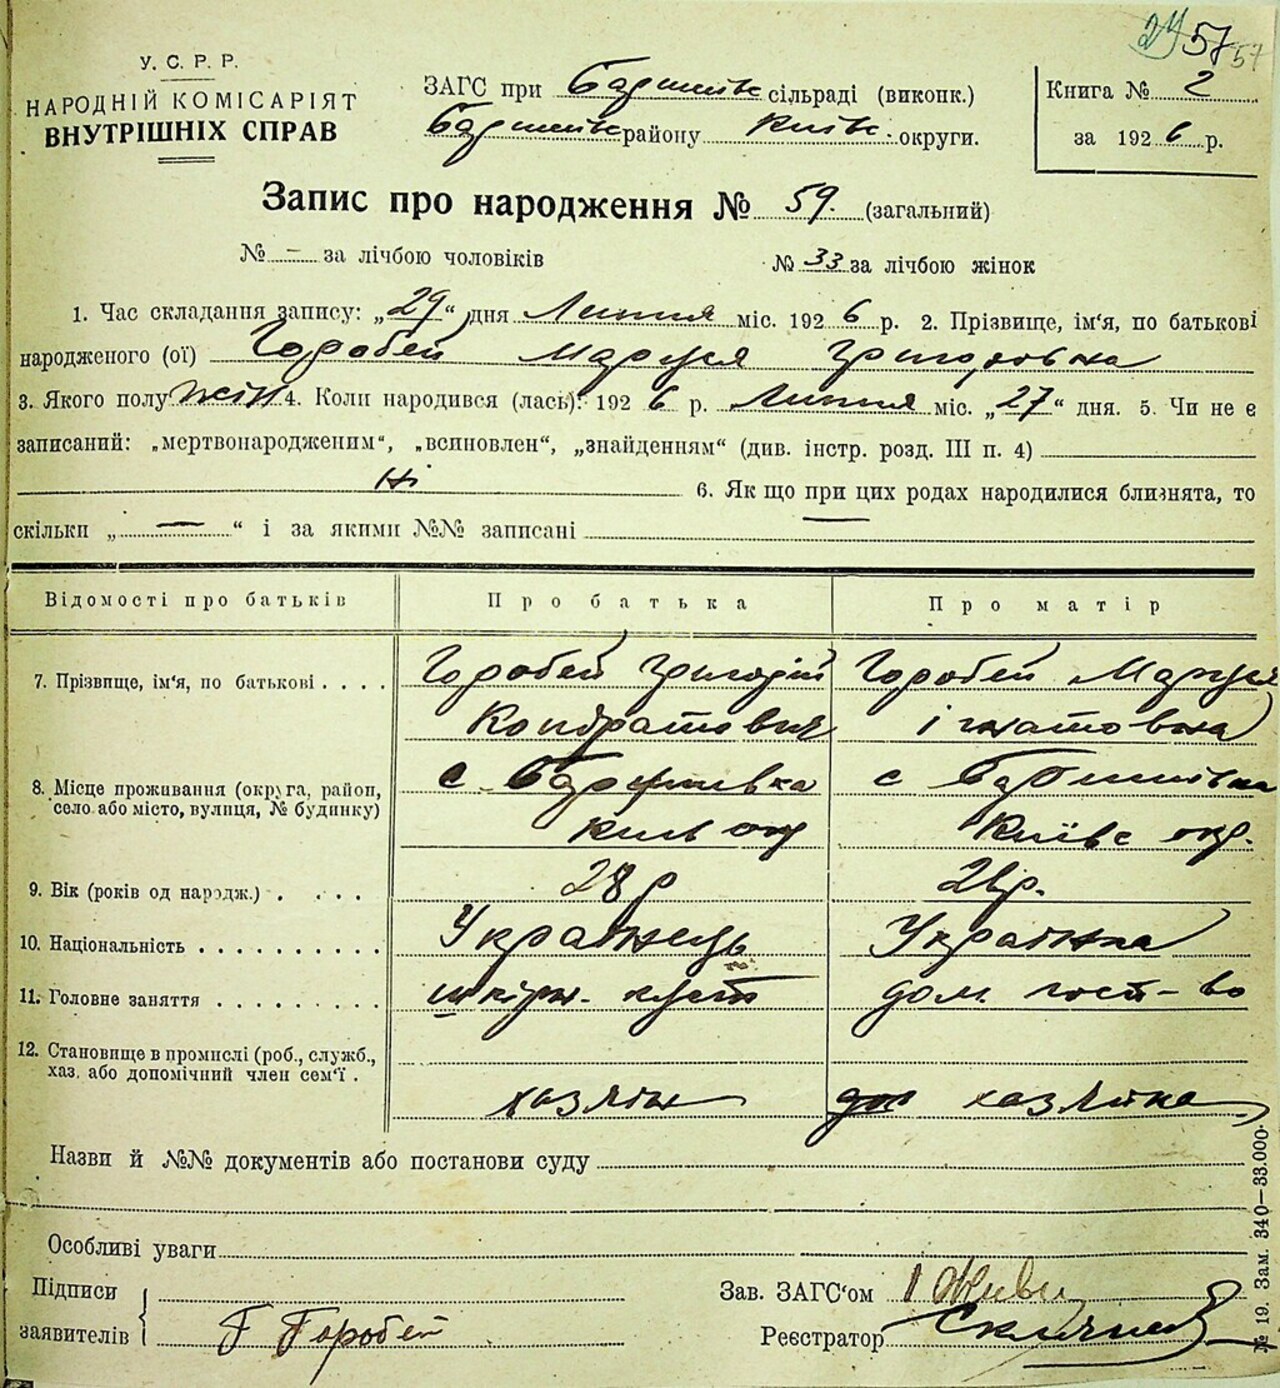 24 57 57
У. С. Р. Р.
НАРОДНІЙ КОМІСАРІЯТ
ВНУТРІШНІХ СПРАВ
ЗАГС при Баришівс сільраді (виконк.)
Баришівс району Київс. округи.
Книга № 2
за 1926 р.
Запис про народження № 59. (загальний)
№ – за лічбою чоловіків
№ 33 за лічбою жінок
1. Час складання запису: „29“ дня Липня міс. 1926 р. 2. Прізвище, ім‘я, по батькові
народженого (ої) Горобей Маруся Григоровна
3. Якого полу жін 4. Коли народився (лась): 1926 р. Липня міс. „27“ дня. 5. Чи не є
записаний: „мертвонародженим“, „всиновлен“, „знайденням“ (див. інстр. розд. III п. 4)
Ні 6. Як що при цих родах народилися близнята, то
скільки „—“ і за якими №№ записані —
Відомості про батьків Про батька Про матір
7. Прізвище, ім‘я, по батькові . . . . Горобей Григорій Горобей Маруся
Кондратович Ігнатовна
8. Місце проживання (округа, район, с Баришівка с Баришівка
село або місто, вулиця, № будинку)
Київ окр Київс окр.
9. Вік (років од народж.) . . . . 28 р р.
10. Національність . . . . . . . . . . Українець Українка
11. Головне заняття . . . . . . . . . шкірн. куст дом. госп-во
12. Становище в промислі (роб., служб.,
хаз. або допомічний член сем‘ї .
хазяїн хазяйка
Назви й №№ документів або постанови суду
Особливі уваги
Підписи
заявителів Г Горобей
Зав. ЗАГС‘ом
Реєстратор
№ 19. Зам. 340—33.000.